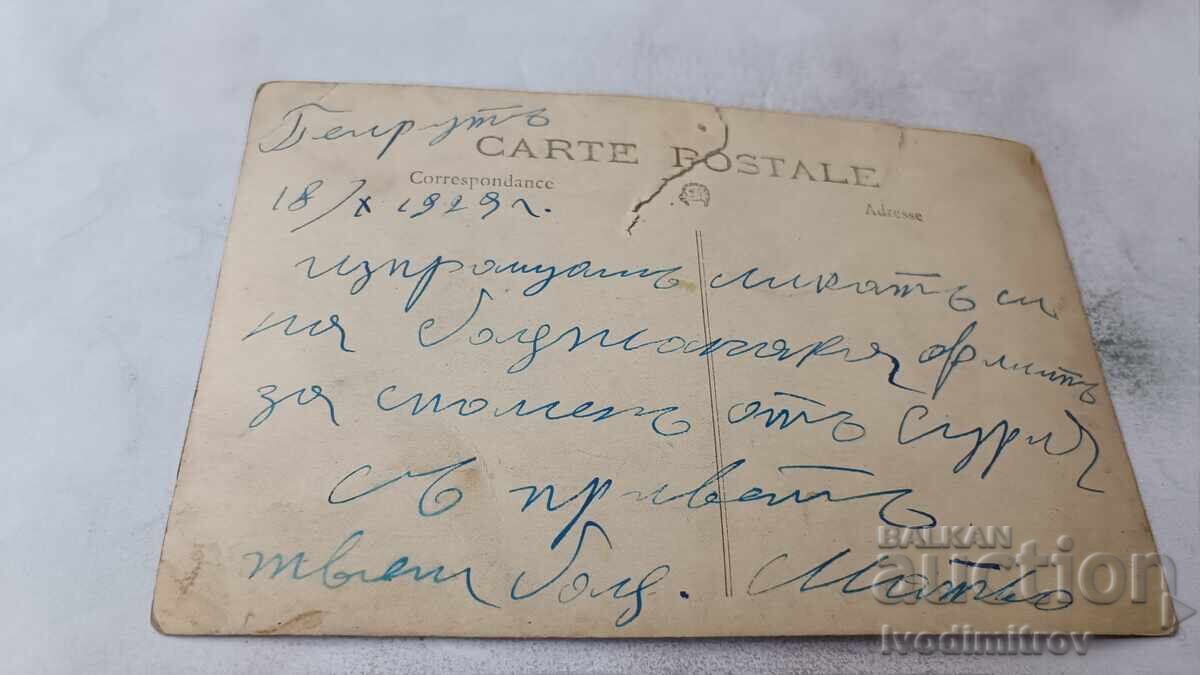 Бейрутъ
CARTE POSTALE
Correspondance
Adresse
18/X 1929 г.
изпращамъ ликатъ си
на баджанакя
за споменъ отъ Сурия
съ приветъ
твоя бадж. Матьо
BALKAN
auction
Ivodimitrov